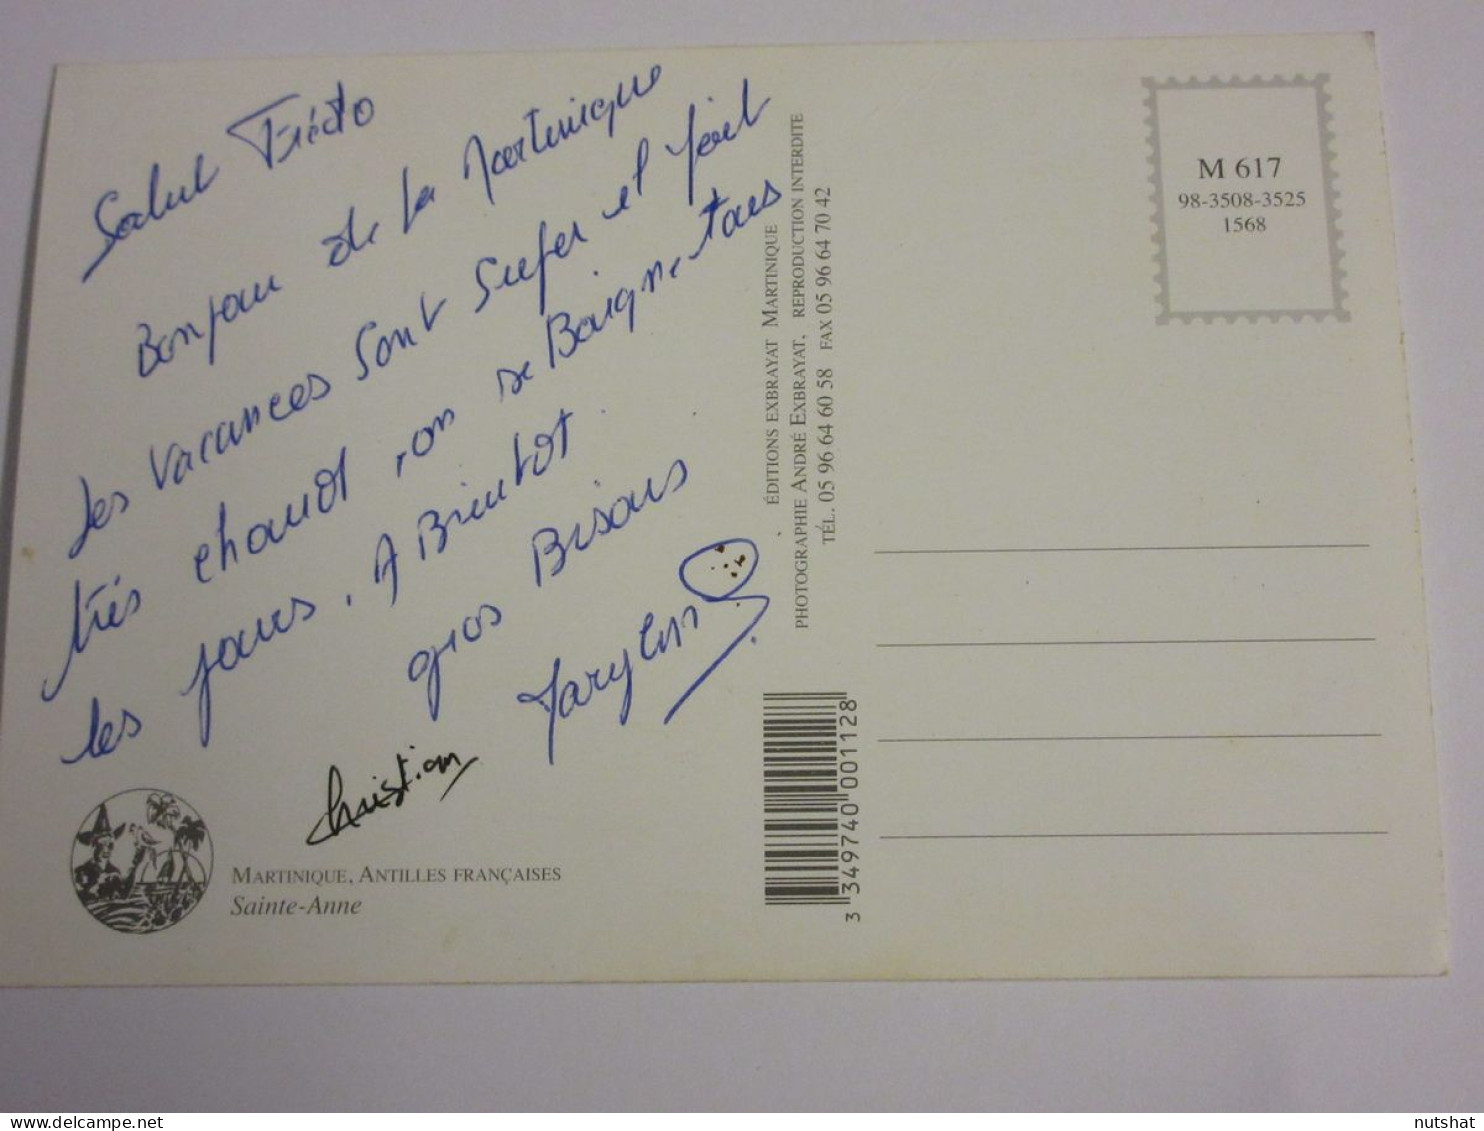 Salut Frédo
Bonjour de la Martinique
les vacances sont super et fait
très chaud, on se baigne tous
les jours. A Bientot.
gros Bisous
Marylène
Christian
MARTINIQUE, ANTILLES FRANÇAISES
Sainte-Anne
ÉDITIONS EXBRAYAT MARTINIQUE
PHOTOGRAPHIE ANDRÉ EXBRAYAT, REPRODUCTION INTERDITE
TÉL. 05 96 64 60 58 FAX 05 96 64 70 42
3 349740 001128
M 617
98-3508-3525
1568
nutshat